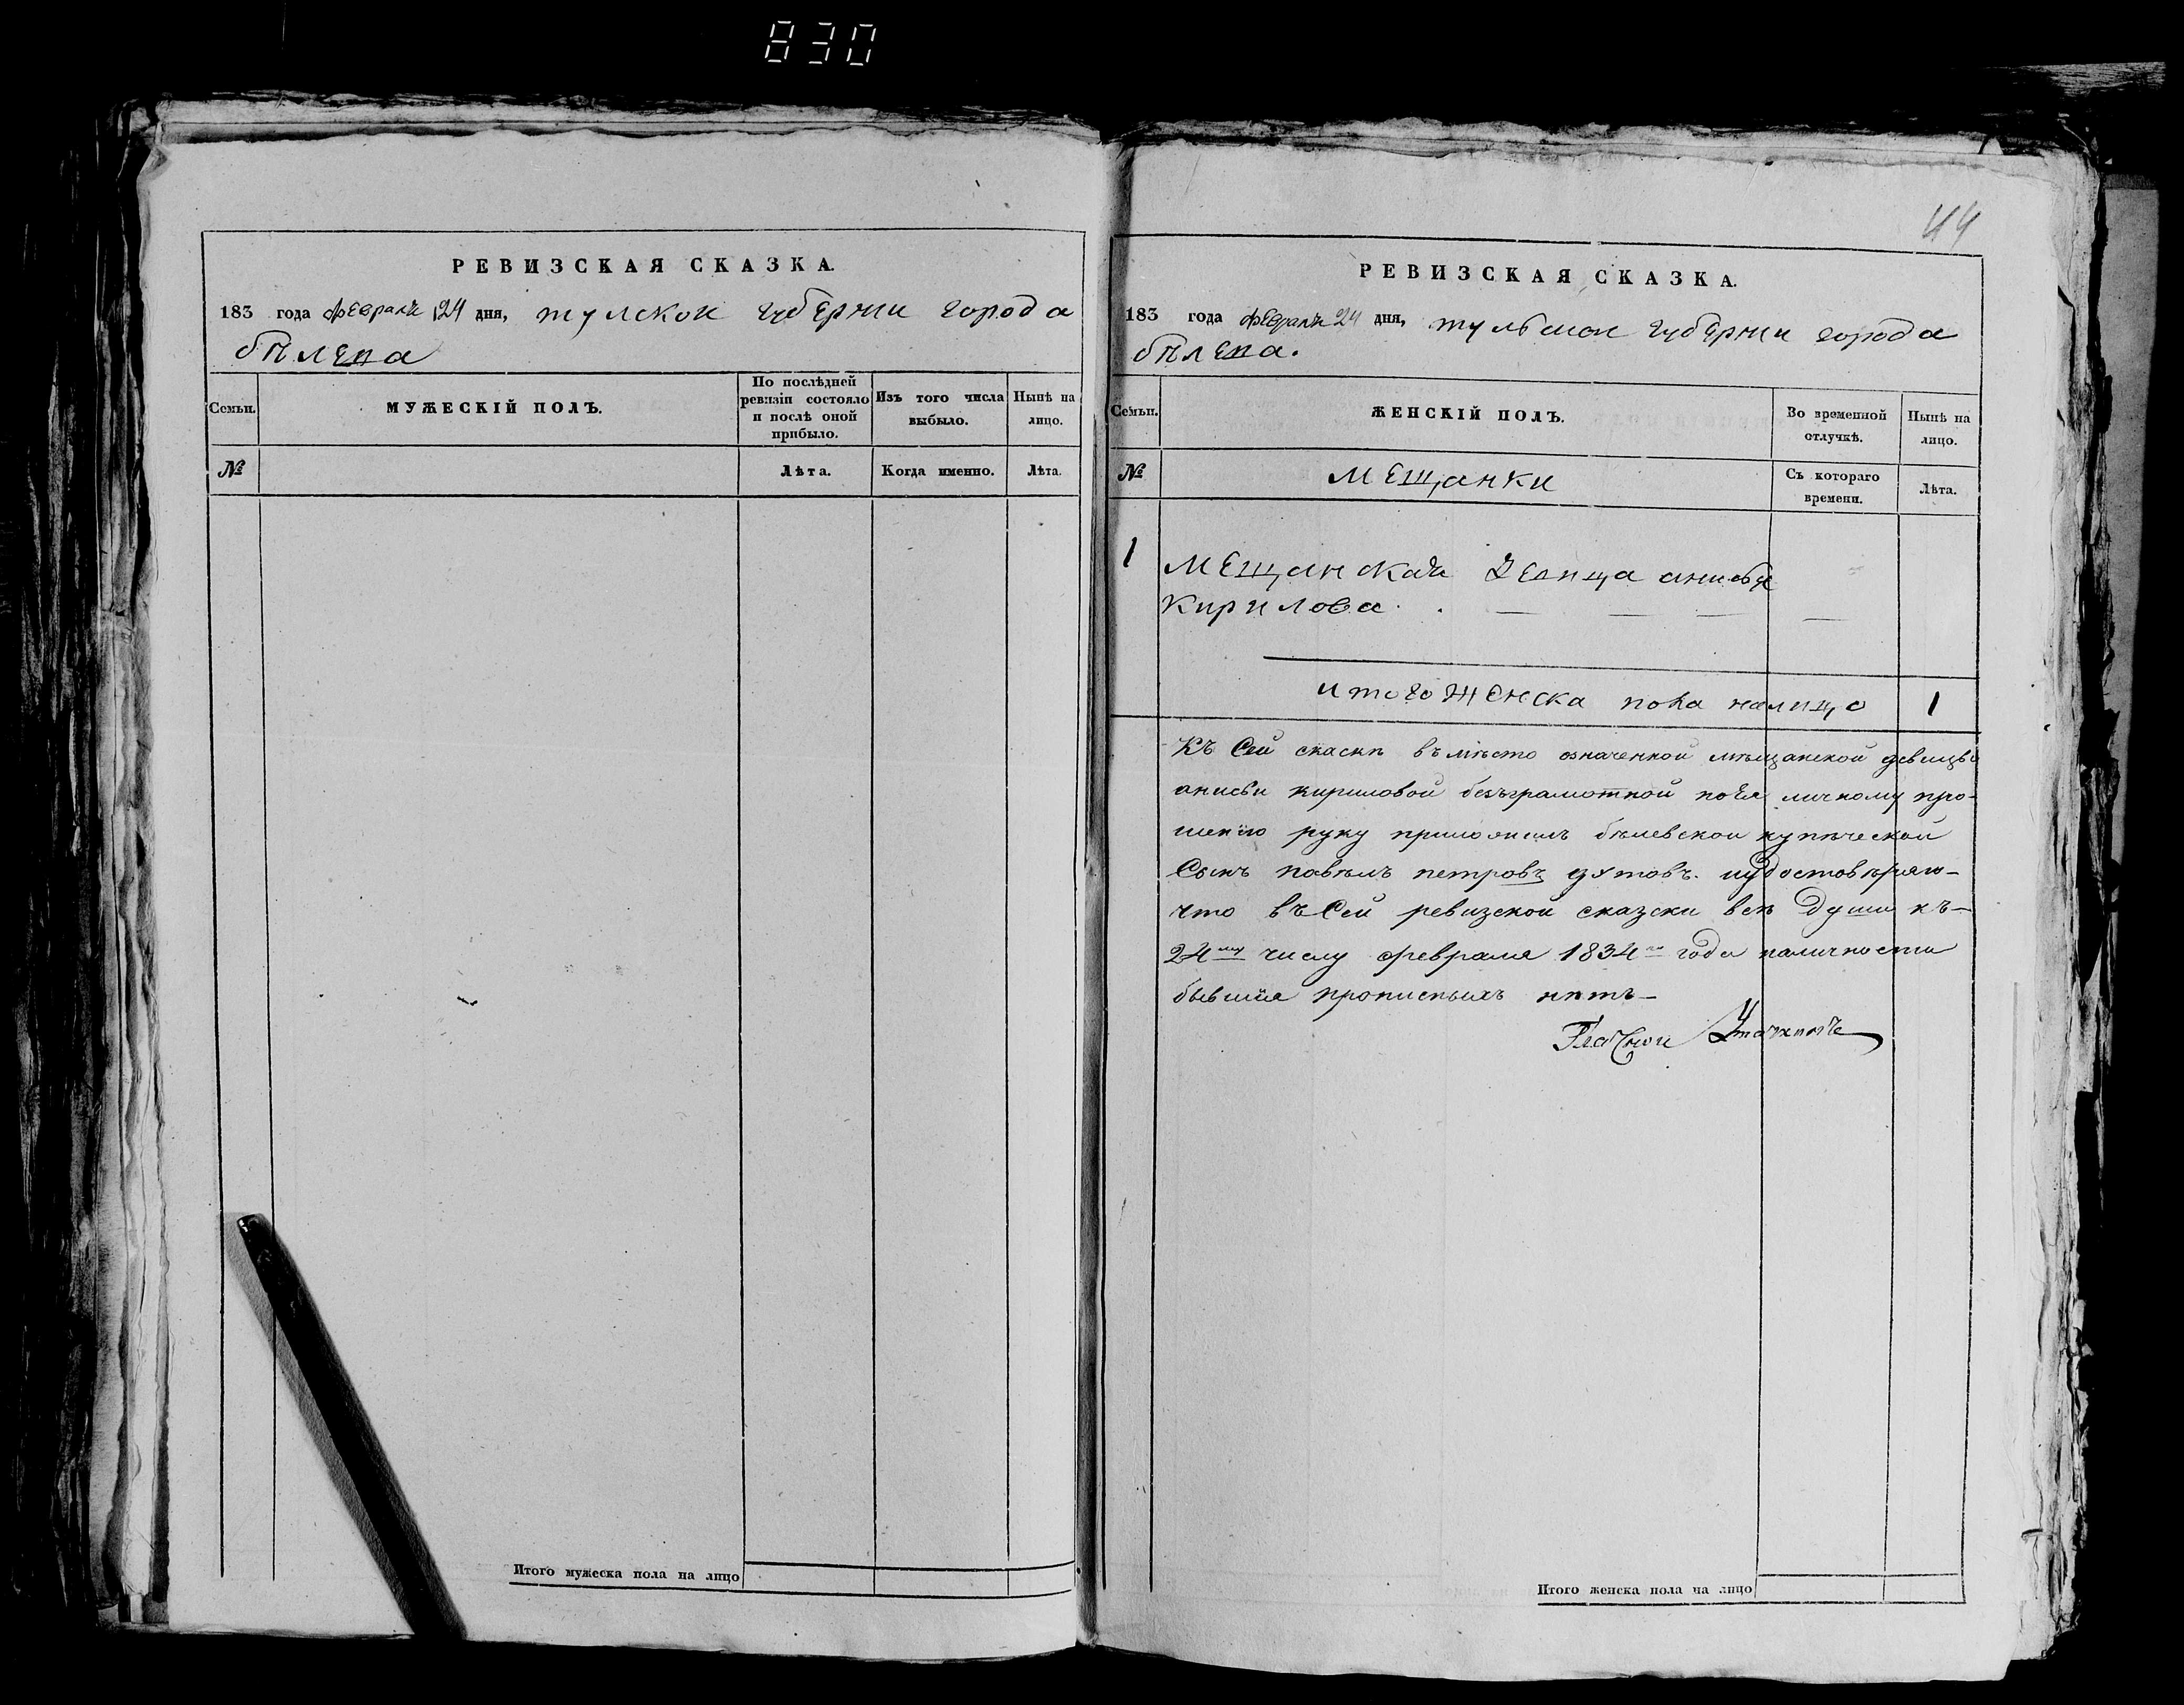 830
РЕВИЗСКАЯ СКАЗКА.
183 года февраля 24 дня, тулской губернии города
бѣлева
Семьи.
МУЖЕСКІЙ ПОЛЪ.
По послѣдней ревизіи состояло и послѣ оной прибыло.
Изъ того числа выбыло.
Нынѣ на лицо.
№
Лѣта.
Когда именно.
Лѣта.
Итого мужеска пола на лицо
44
РЕВИЗСКАЯ СКАЗКА.
183 года февраля 24 дня, тульской губернии города
бѣлева.
Семьи.
ЖЕНСКІЙ ПОЛЪ.
Во временной отлучкѣ.
Нынѣ на лицо.
№
мещанки
Съ котораго времени.
Лѣта.
1
мещанская девица анисья
Кирилова
итого женска пола налицо 1
Къ Сей скаскѣ въмѣсто означенной мѣщанской девицы
анисьи кириловой безъграмотной по Ея личному про-
шению руку приложилъ бѣлевской купѣческой
Сынъ павѣлъ петровъ иудостовѣряю-
что въ Сей ревизской сказски всѣ души къ-
24му числу февраля 1834го года наличности
бывшия прописныхъ нѣтъ-
Гласной
Итого женска пола на лицо